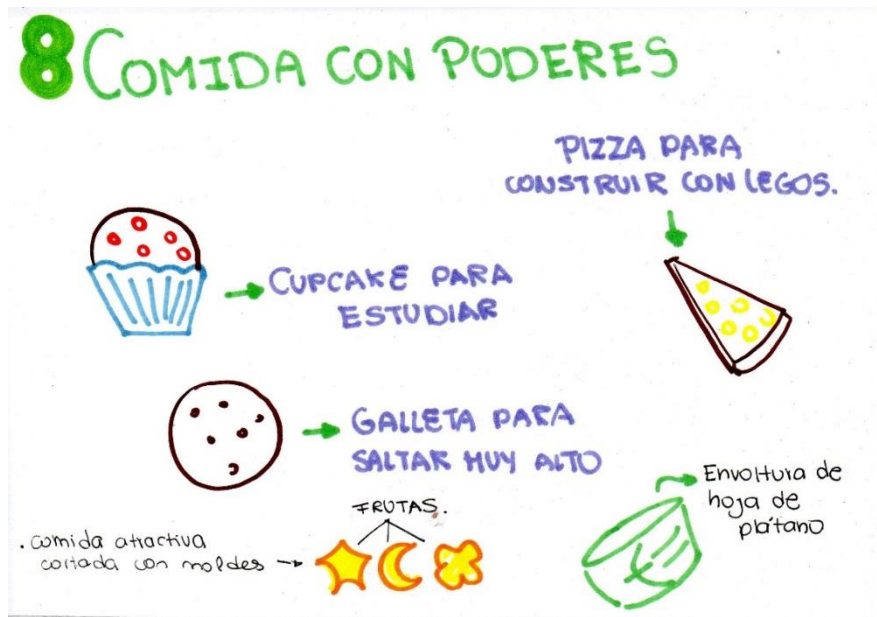 8 COMIDA CON PODERES
PIZZA PARA
CONSTRUIR CON LEGOS.
CUPCAKE PARA
ESTUDIAR
GALLETA PARA
SALTAR MUY ALTO
FRUTAS.
. comida atractiva
cortada con moldes
Envoltura de
hoja de
plátano